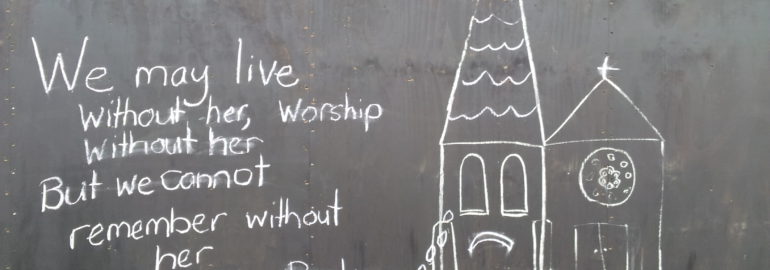 We may live
without her, Worship
without her
But we cannot
remember without
her